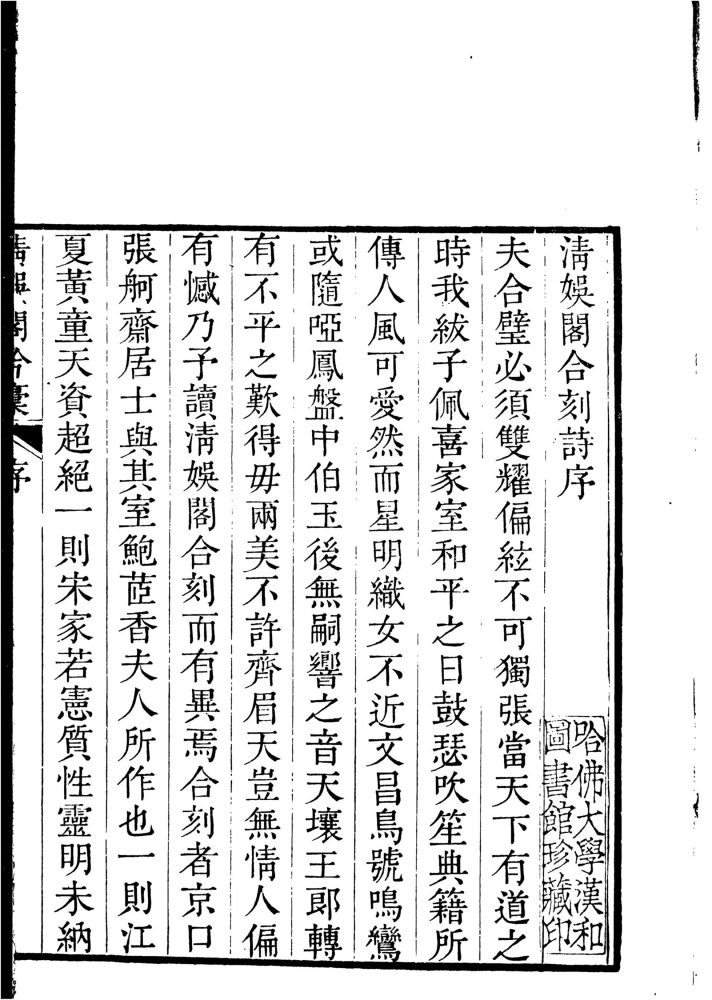 清娛閣合刻詩序
哈佛大學漢和
圖書館珍藏印
夫合璧必須雙耀偏絃不可獨張當天下有道之
時我紱子佩喜家室和平之日鼓瑟吹笙典籍所
傳人風可愛然而星明織女不近文昌鳥號鳴鸞
或隨啞鳳盤中伯玉後無嗣響之音天壤王郎轉
有不平之歎得毋兩美不許齊眉天豈無情人偏
有憾乃予讀清娛閣合刻而有異焉合刻者京口
張舸齋居士與其室鮑茝香夫人所作也一則江
夏黃童天資超絕一則宋家若憲質性靈明未納
清娛閣合稾
序